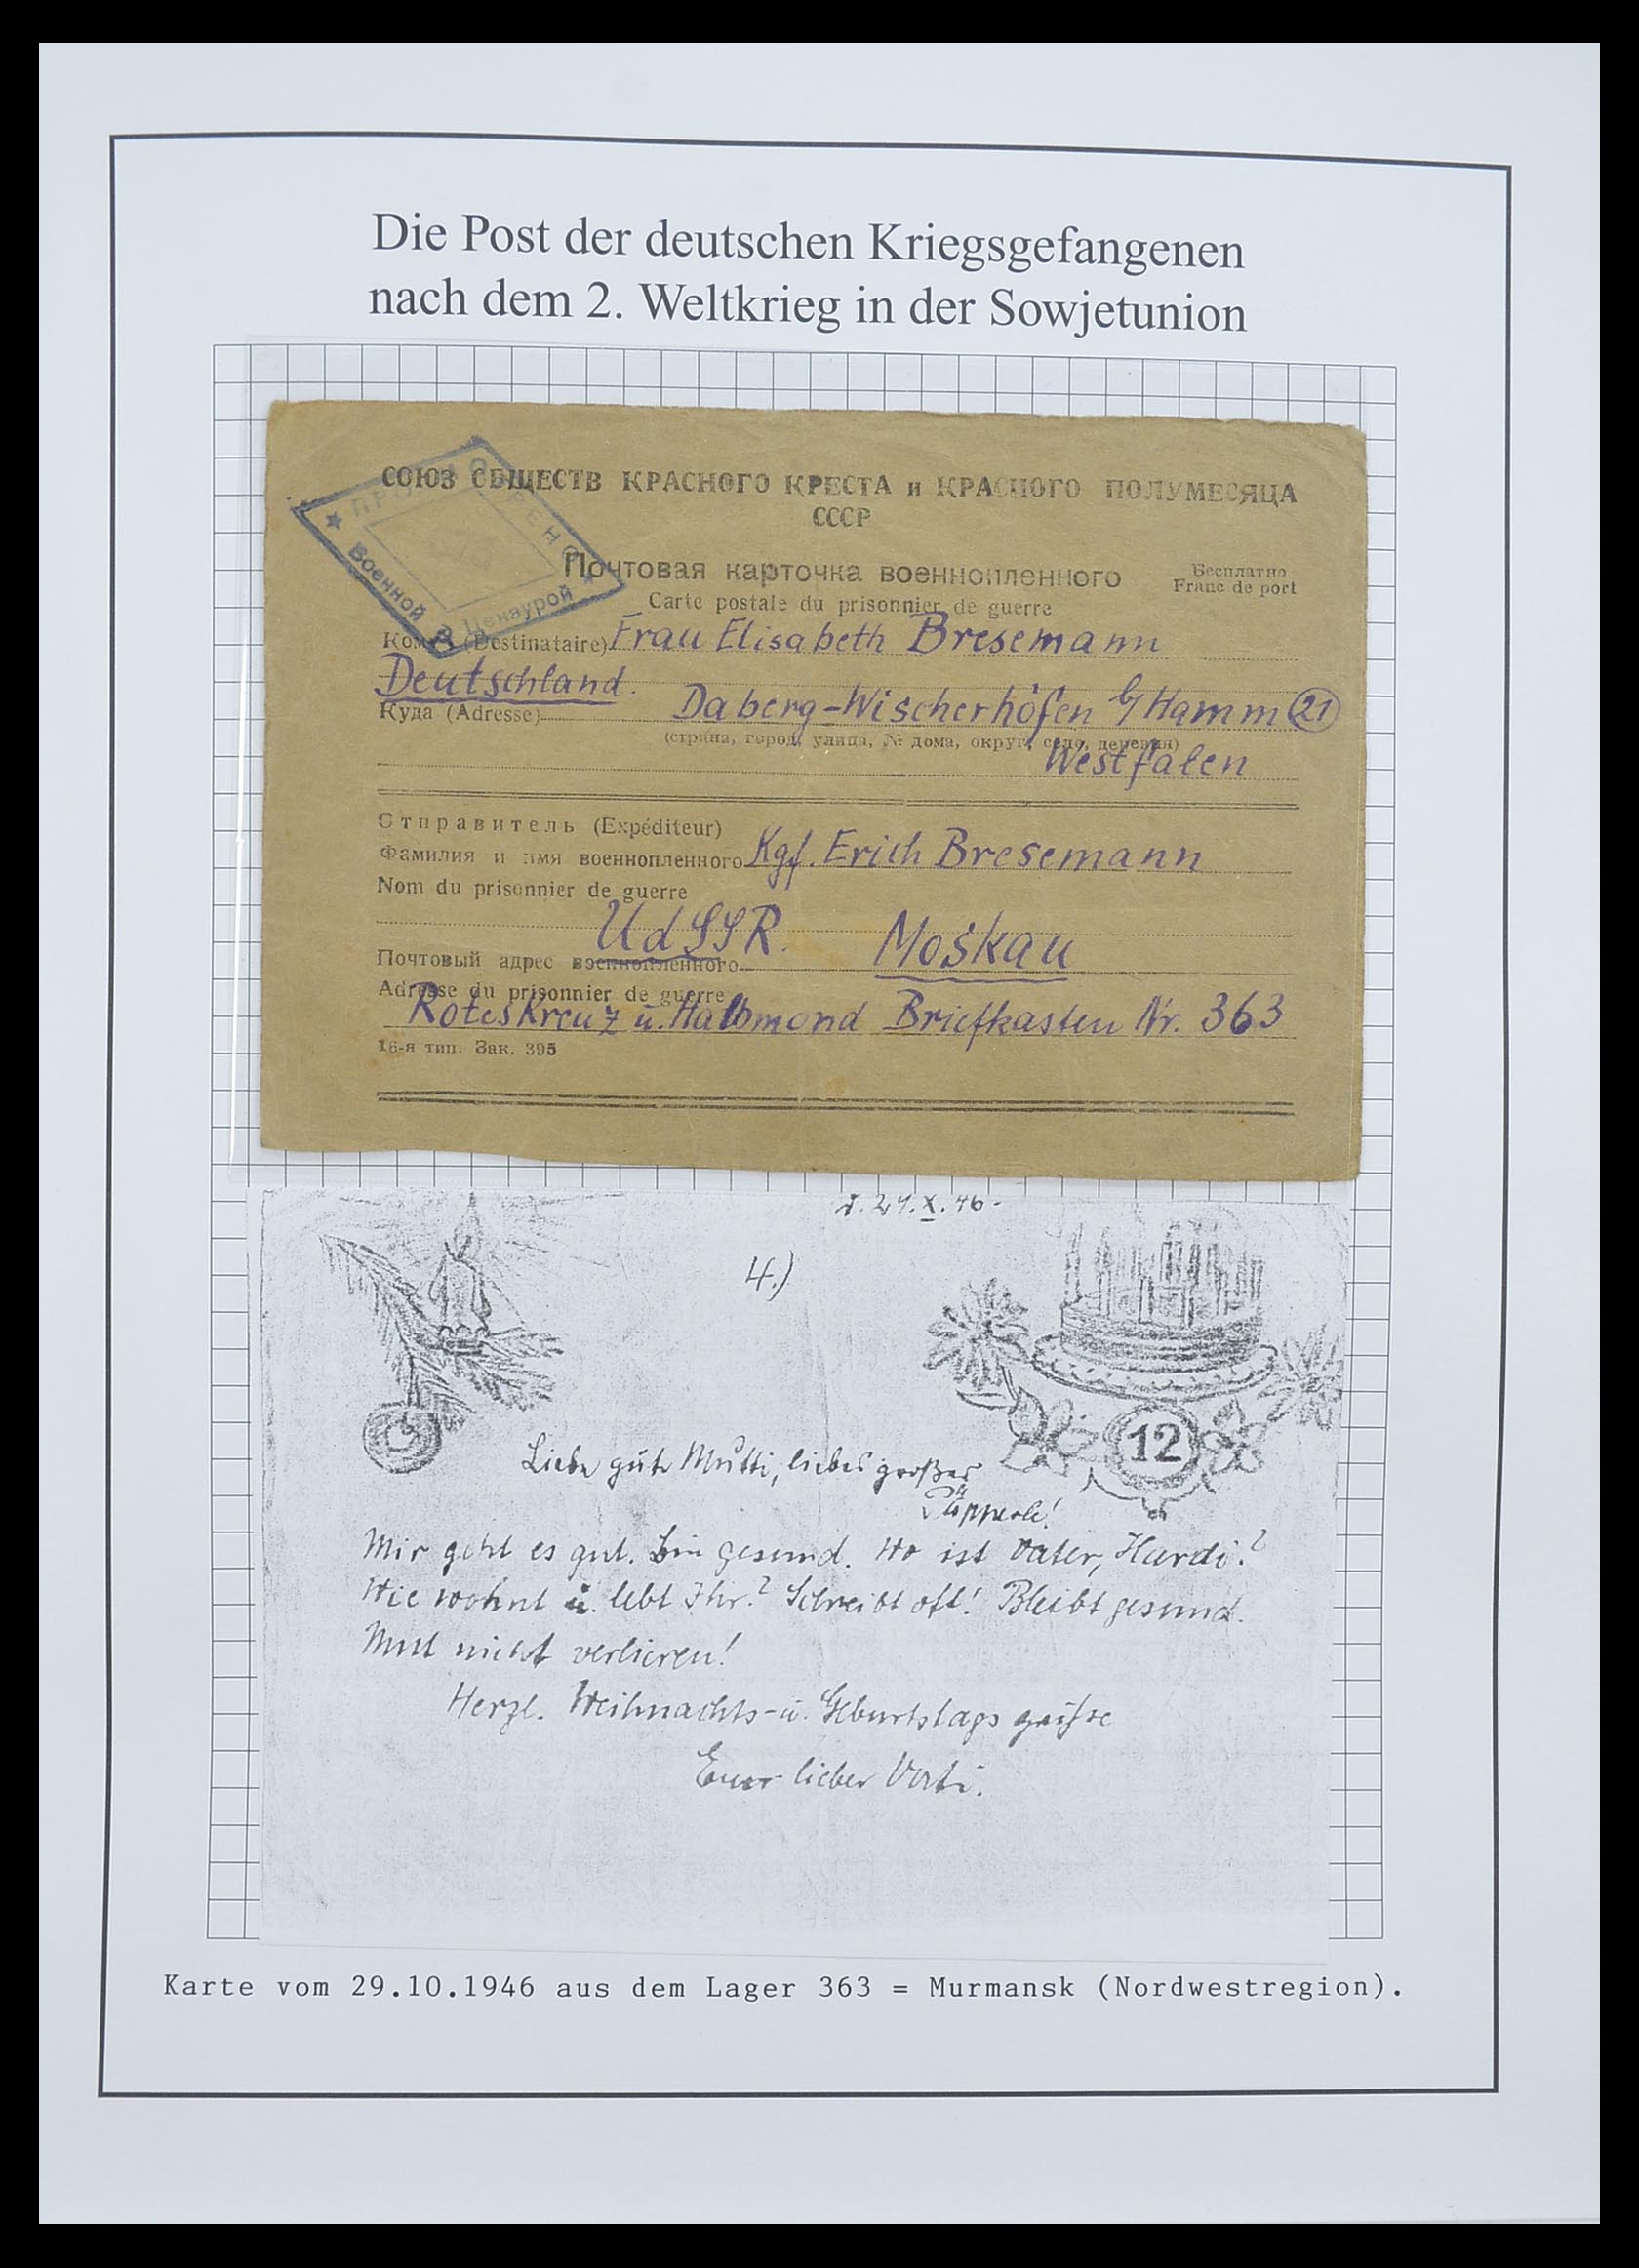 Die Post der deutschen Kriegsgefangenen
nach dem 2. Weltkrieg in der Sowjetunion
СОЮЗ ОБЩЕСТВ КРАСНОГО КРЕСТА и КРАСНОГО ПОЛУМЕСЯЦА
СССР
ПРОСМОТРЕНО
Военной Цензурой
Почтовая карточка военнопленного
Бесплатно
Franc de port
Carte postale du prisonnier de guerre
Кому (Destinataire) Frau Elisabeth Bresemann
Deutschland.
Куда (Adresse) Daberg-Wischerhöfen b/Hamm 21
(страна, город, улица, № дома, округ, село, деревня)
Westfalen
Отправитель (Expéditeur)
Фамилия и имя военнопленного Kgf. Erich Bresemann
Nom du prisonnier de guerre
UdSSR. Moskau
Почтовый адрес военнопленного
Adresse du prisonnier de guerre
Rotes Kreuz u. Halbmond Briefkasten Nr. 363
16-я тип. Зак. 395
29.X.46-
4.)
12
Liebe gute Mutti, liebes großes
Mir geht es gut. Bin gesund. Wo ist Vater, Hardi?
Wie wohnt u. lebt Ihr? Schreibt oft! Bleibt gesund.
Mut nicht verlieren!
Herzl. Weihnachts- u. Geburtstagsgrüsse
Euer lieber Vati.
Karte vom 29.10.1946 aus dem Lager 363 = Murmansk (Nordwestregion).